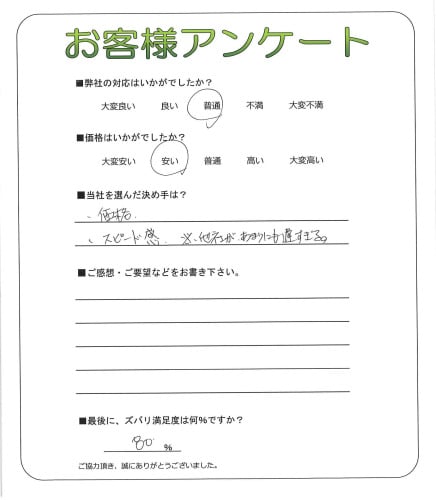 お客様アンケート
■弊社の対応はいかがでしたか？
大変良い 良い 普通 不満 大変不満
■価格はいかがでしたか？
大変安い 安い 普通 高い 大変高い
■当社を選んだ決め手は？
、価格
、スピード感 ※、他社が、あまりにも遅すぎる。
■ご感想・ご要望などをお書き下さい。
■最後に、ズバリ満足度は何％ですか？
80 ％
ご協力頂き、誠にありがとうございました。